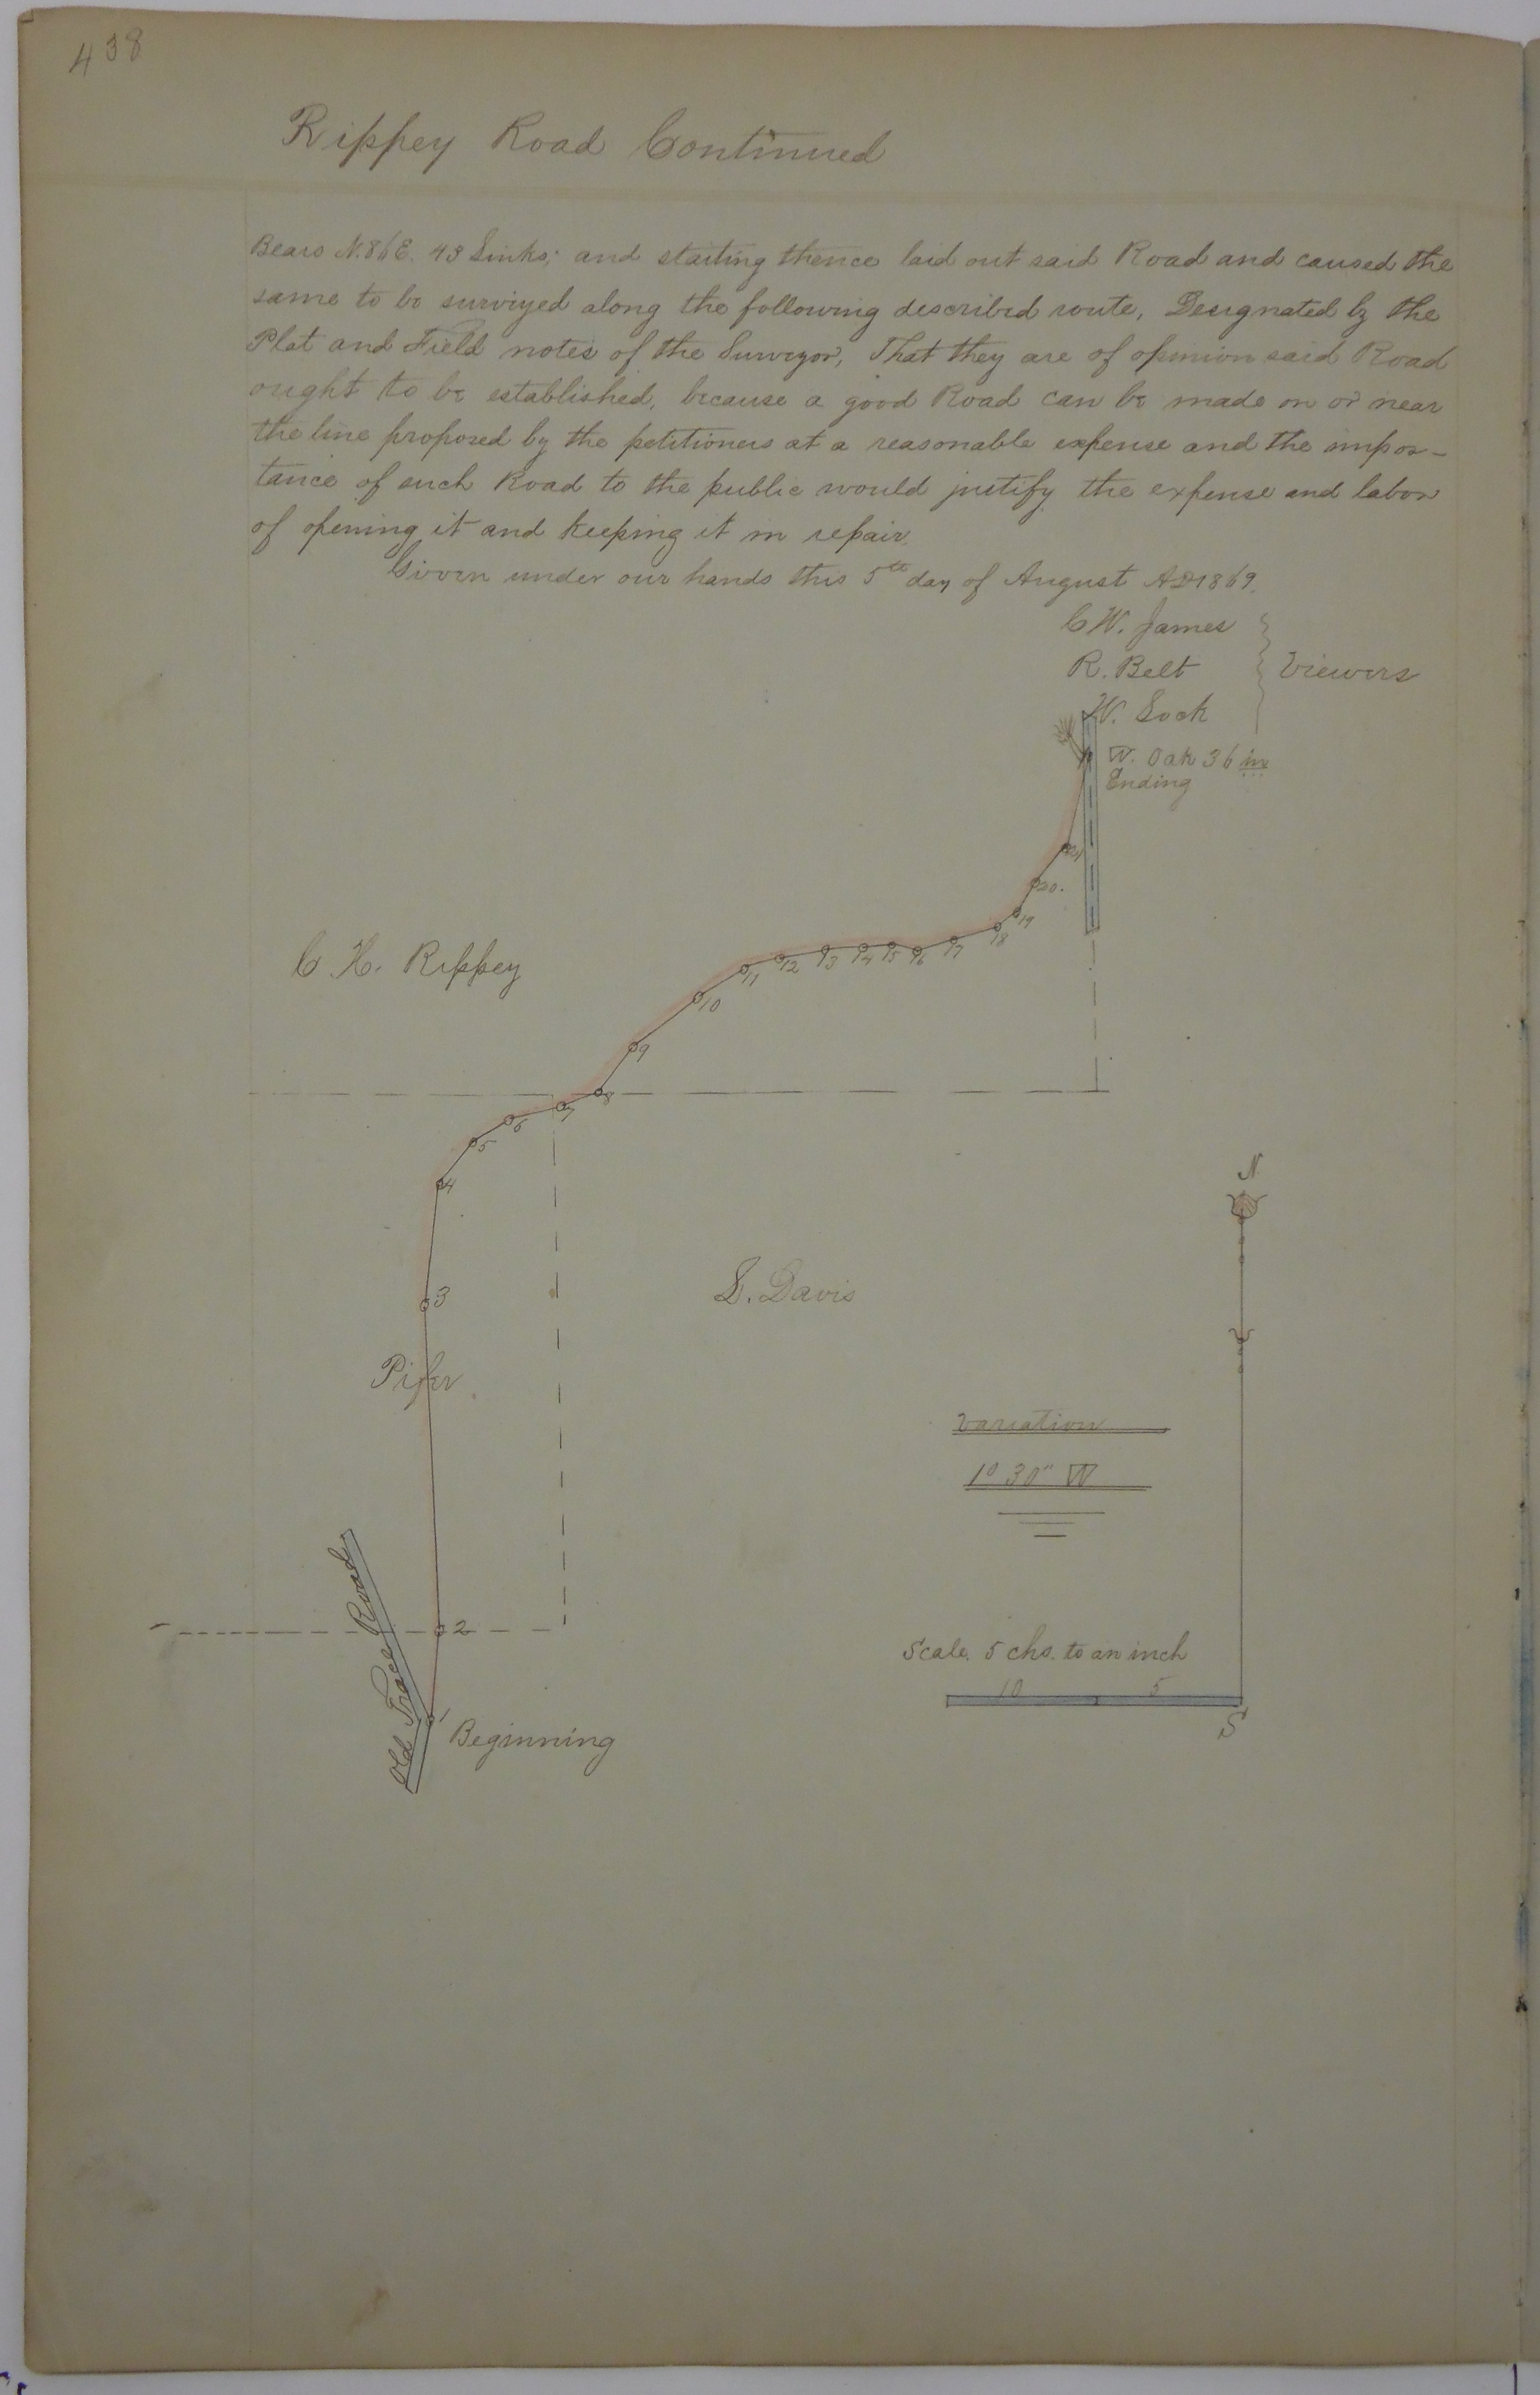 438
Rippey Road Continued
Bears N.86E. 43 Links; and starting thence laid out said Road and caused the
same to be surviyed along the following described route, Designated by the
Plat and Field notes of the Surveyor, That they are of opinion said Road
ought to be established, because a good Road can be made on or near
the line proposed by the petitioners at a reasonable expense and the impor-
tance of such Road to the public would justify the expense and labor
of opening it and keeping it in repair.
Given under our hands this 5th day of August AD 1869.
C W. James
R. Belt
Viewers
W. Lock
W. Oak 36 in
Ending
21
20.
19
18
17
16
15
14
13
12
11
10
9
8
7
6
5
4
3
2
1
C H. Rippey
S. Davis
Pifer
Old Trace Road
Beginning
N
Variation
1° 30" W
Scale. 5 chs. to an inch
10 5
S